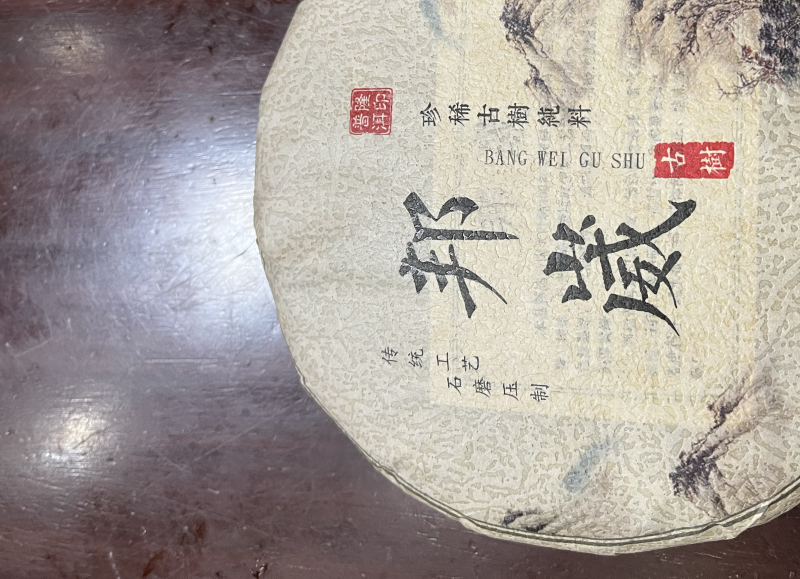 隆印
普洱
珍稀古樹純料
BANG WEI GU SHU
古樹
邦崴
传统工艺
石磨压制